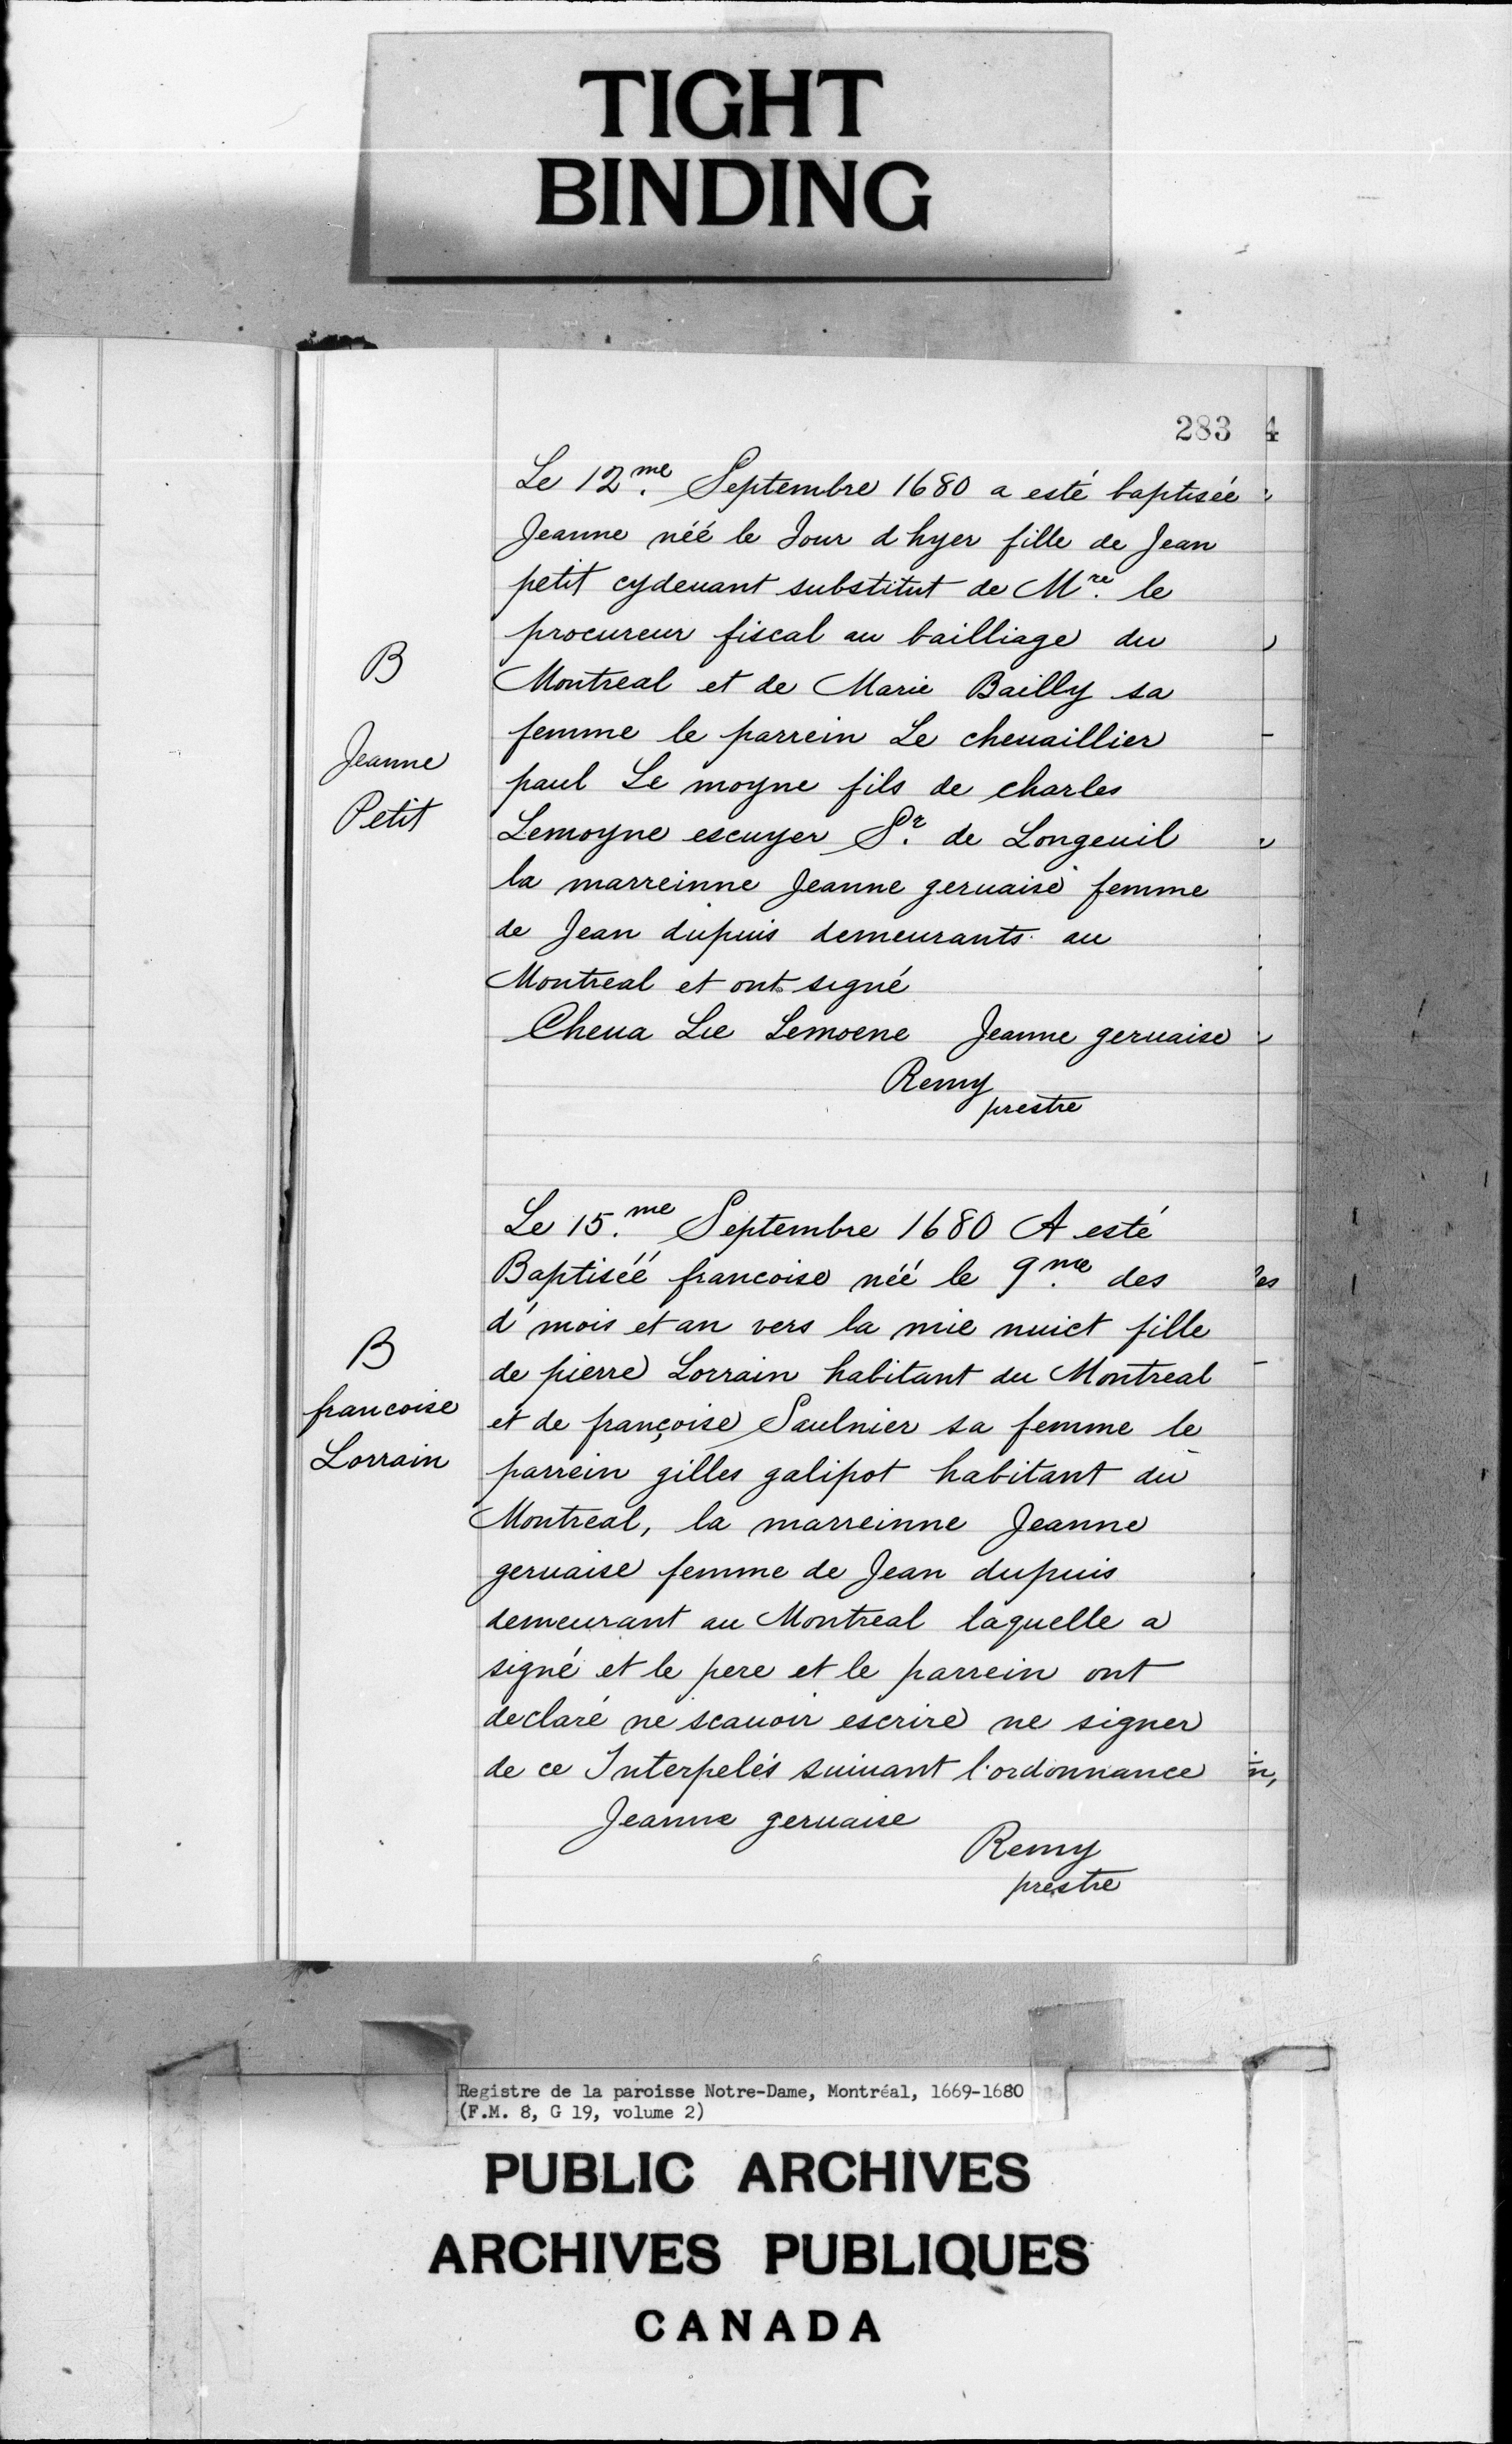 TIGHT
BINDING
283 4
Le 12.me Septembre 1680 a esté baptisée
Jeanne néé le Jour d hyer fille de Jean
petit cydeuant substitut de M.re le
procureur fiscal au bailliage du
B
Montreal et de Marie Bailly sa
femme le parrein Le cheuaillier
Jeanne
paul Le moyne fils de charles
Petit
Lemoyne escuyer S.r de Longeuil
la marreinne Jeanne geruaise femme
de Jean dupuis demeurants au
Montreal et ont signé
Cheua Lie Lemoene Jeanne geruaise
Remy
prestre
Le 15.me Septembre 1680 A esté
Baptiséé francoise néé le 9.me des
es
d' mois et an vers la mie nuict fille
B
de pierre Lorrain habitant du Montreal
francoise
et de françoise Saulnier sa femme le
Lorrain
parrein gilles galipot habitant du
Montreal, la marreinne Jeanne
geruaise femme de Jean dupuis
demeurant au Montreal laquelle a
signé et le pere et le parrein ont
declaré ne scauoir escrire ne signer
de ce Interpelés suiuant l'ordonnance
in,
Jeanne geruaise
Remy
prestre
Registre de la paroisse Notre-Dame, Montréal, 1669-1680
(F.M. 8, G 19, volume 2)
PUBLIC ARCHIVES
ARCHIVES PUBLIQUES
CANADA